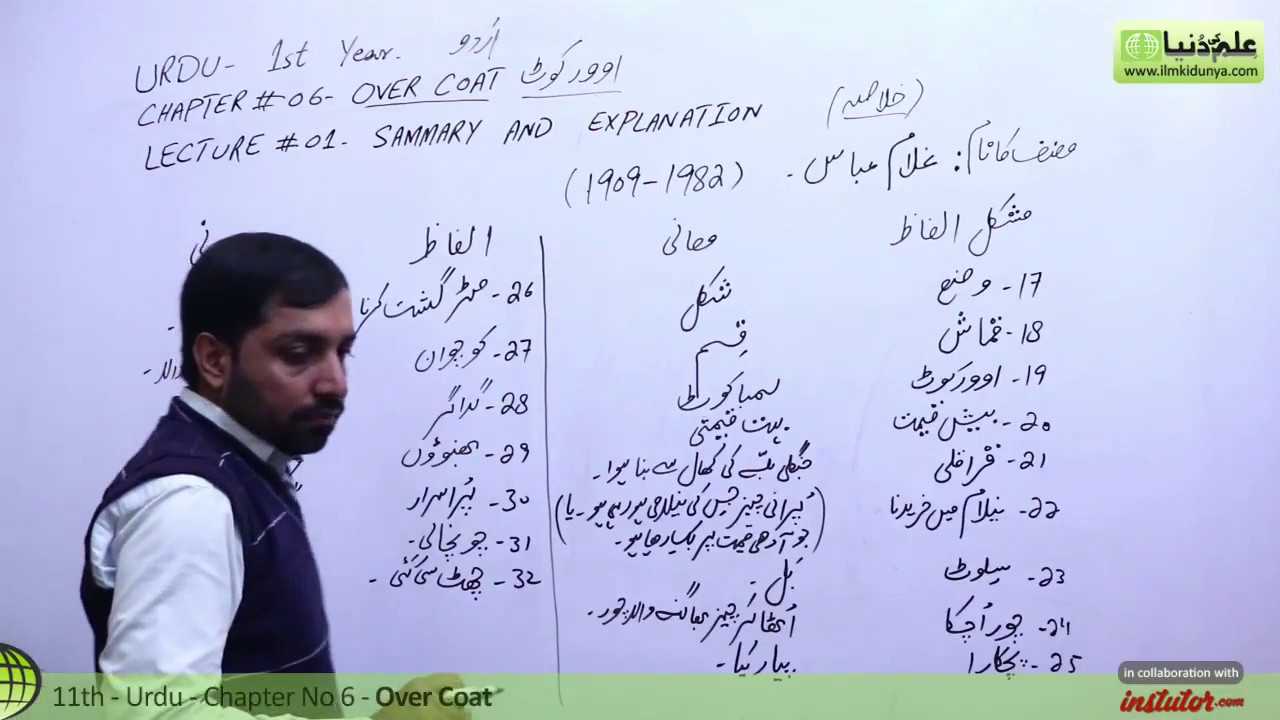 علم کی دُنیا
www.ilmkidunya.com
URDU- 1st Year. اُردو
CHAPTER # 06- OVER COAT اوورکوٹ
LECTURE # 01. SAMMARY AND EXPLANATION (خلاصہ)
مصنف کا نام: غلام عباس۔ (1909-1982)
مشکل الفاظ معانی الفاظ
17- وضع شکل 26-
18- قماش قِسم 27- کوچوان
19- اوورکوٹ لمبا کوٹ 28- گداگر
20- بیش قیمت بہت قیمتی 29- بھنوؤں
21- قراقلی جنگلی بلّے کی کھال سے بنا ہوا۔ 30- پُراسرار
22- نیلام میں خریدنا (پُرانی چیز جس کی نیلامی ہو رہی ہو۔ یا 31- چونچالی۔
جو آدھی قیمت پر بک رہا ہو۔)
23- سلوٹ بَل۔ 32- چھٹ سی گئی۔
24- چور اُچکا اُٹھا کر چیز بھاگنے والا چور۔
25- پچکارا پیار کیا۔
11th - Urdu - Chapter No 6 - Over Coat
in collaboration with
instutor.com